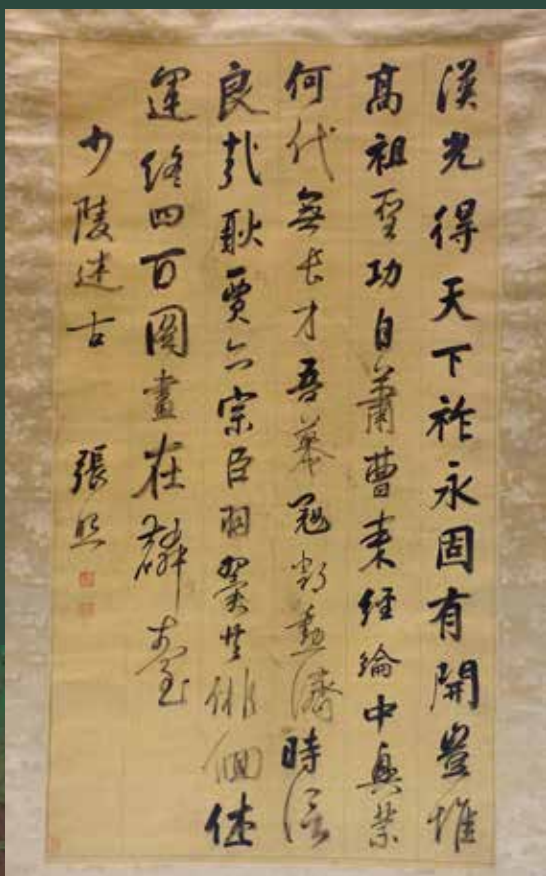 漢光得天下祚永固有開豈惟
高祖聖功自蕭曹來經綸中興業
何代無長才吾慕寇鄧勳濟時信
良哉耿賈亦宗臣羽翼共徘徊休
運終四百圖畫在麟臺
少陵述古 張照